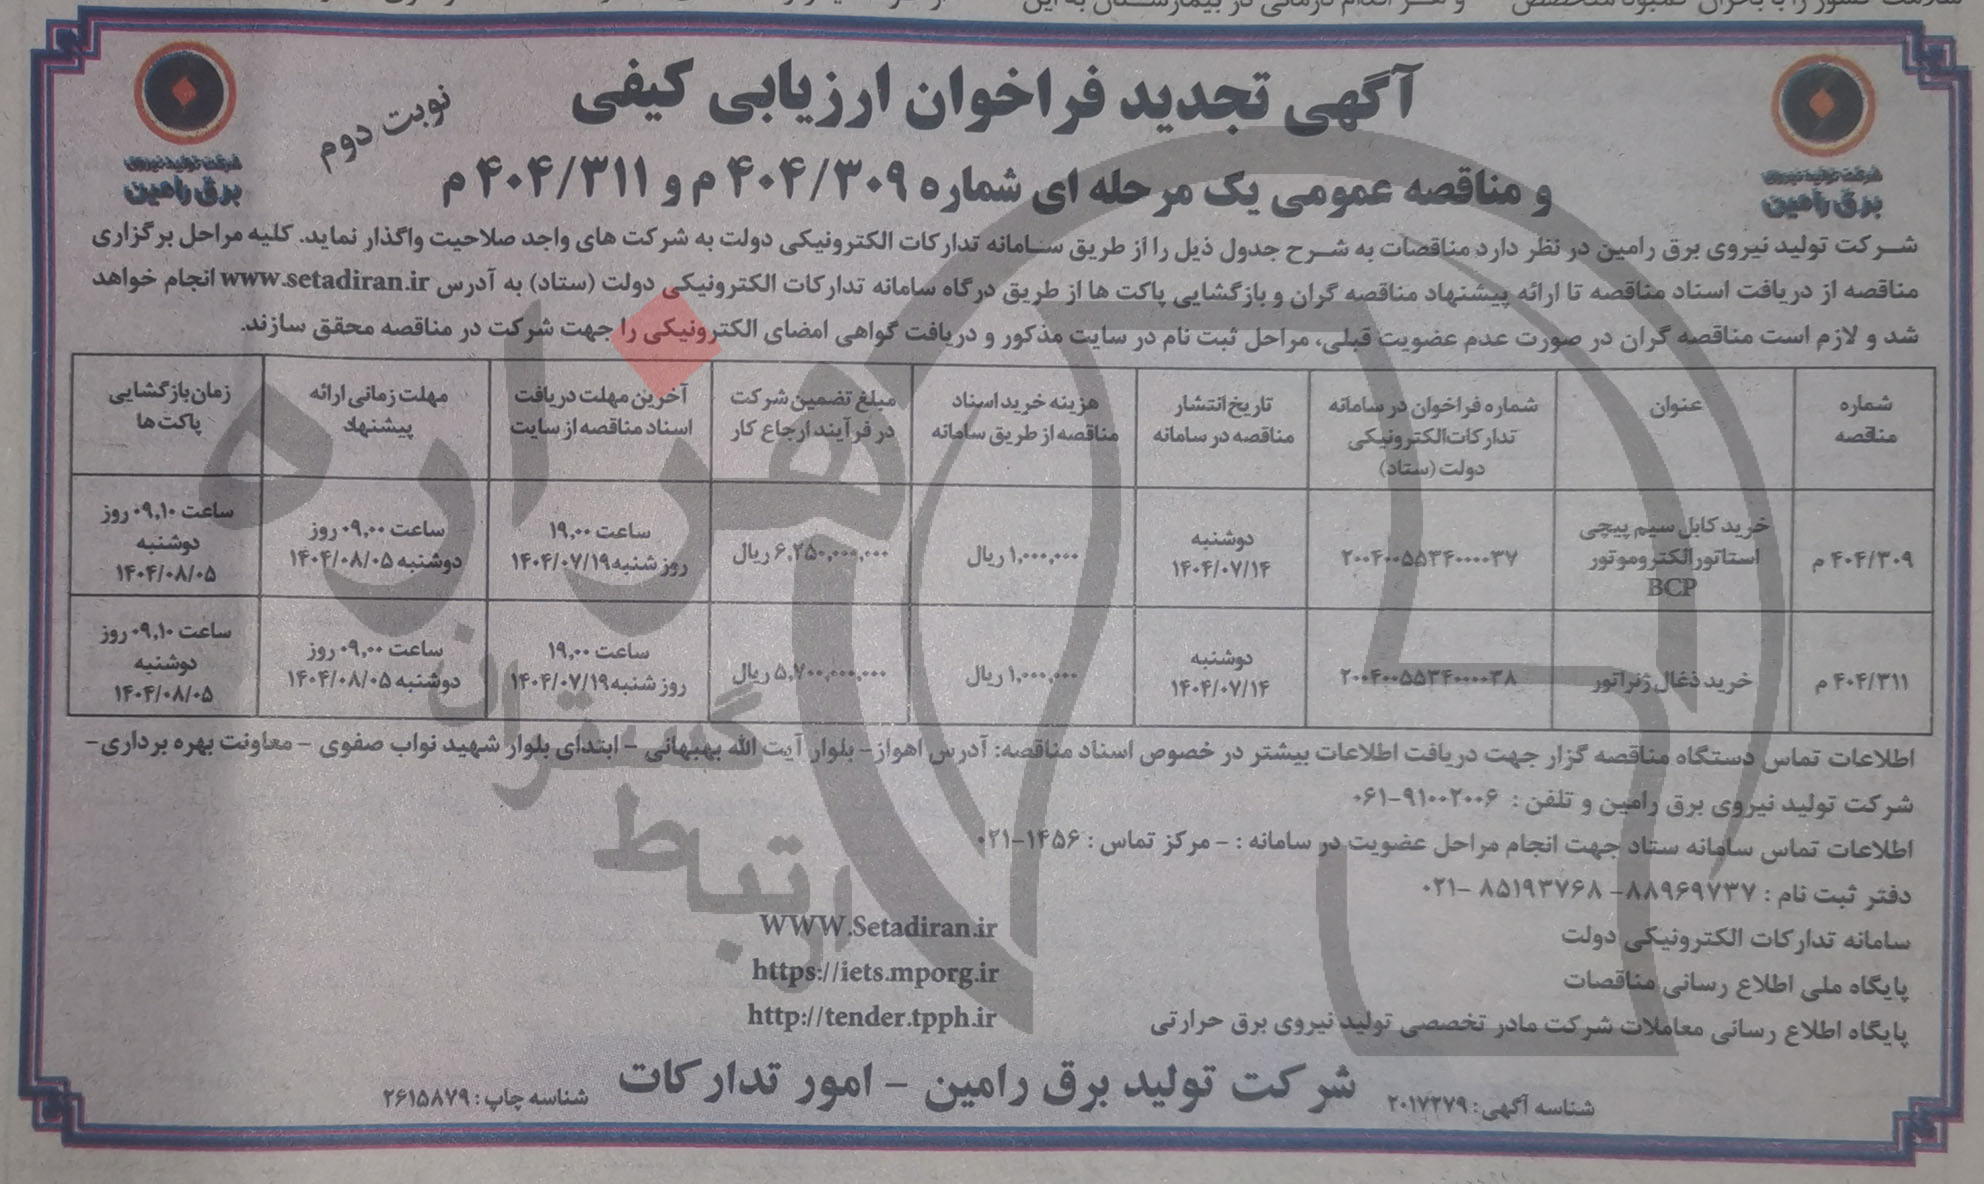 آگهی تجدید فراخوان ارزیابی کیفی
نوبت دوم
و مناقصه عمومی یک مرحله ای شماره ۴۰۴/۳۰۹ م و ۴۰۴/۳۱۱ م
شرکت تولید نیروی برق رامین
شرکت تولید نیروی برق رامین
شرکت تولید نیروی برق رامین در نظر دارد مناقصات به شرح جدول ذیل را از طریق سامانه تدارکات الکترونیکی دولت به شرکت های واجد صلاحیت واگذار نماید. کلیه مراحل برگزاری
مناقصه از دریافت اسناد مناقصه تا ارائه پیشنهاد مناقصه گران و بازگشایی پاکت ها از طریق درگاه سامانه تدارکات الکترونیکی دولت (ستاد) به آدرس www.setadiran.ir انجام خواهد
شد و لازم است مناقصه گران در صورت عدم عضویت قبلی، مراحل ثبت نام در سایت مذکور و دریافت گواهی امضای الکترونیکی را جهت شرکت در مناقصه محقق سازند.
شماره مناقصه
عنوان
شماره فراخوان در سامانه تدارکات الکترونیکی دولت (ستاد)
تاریخ انتشار مناقصه در سامانه
هزینه خرید اسناد مناقصه از طریق سامانه
مبلغ تضمین شرکت در فرآیند ارجاع کار
آخرین مهلت دریافت اسناد مناقصه از سایت
مهلت زمانی ارائه پیشنهاد
زمان بازگشایی پاکت ها
۴۰۴/۳۰۹ م
خرید کابل سیم پیچی استاتور الکتروموتور BCP
۲۰۰۴۰۰۵۵۳۴۰۰۰۰۳۷
دوشنبه ۱۴۰۴/۰۷/۱۴
۱,۰۰۰,۰۰۰ ریال
۶,۲۵۰,۰۰۰,۰۰۰ ریال
ساعت ۱۹,۰۰ روز شنبه ۱۴۰۴/۰۷/۱۹
ساعت ۰۹,۰۰ روز دوشنبه ۱۴۰۴/۰۸/۰۵
ساعت ۰۹,۱۰ روز دوشنبه ۱۴۰۴/۰۸/۰۵
۴۰۴/۳۱۱ م
خرید ذغال ژنراتور
۲۰۰۴۰۰۵۵۳۴۰۰۰۰۳۸
دوشنبه ۱۴۰۴/۰۷/۱۴
۱,۰۰۰,۰۰۰ ریال
۵,۷۰۰,۰۰۰,۰۰۰ ریال
ساعت ۱۹,۰۰ روز شنبه ۱۴۰۴/۰۷/۱۹
ساعت ۰۹,۰۰ روز دوشنبه ۱۴۰۴/۰۸/۰۵
ساعت ۰۹,۱۰ روز دوشنبه ۱۴۰۴/۰۸/۰۵
اطلاعات تماس دستگاه مناقصه گزار جهت دریافت اطلاعات بیشتر در خصوص اسناد مناقصه: آدرس اهواز- بلوار آیت الله بهبهانی - ابتدای بلوار شهید نواب صفوی - معاونت بهره برداری-
شرکت تولید نیروی برق رامین و تلفن : ۹۱۰۰۲۰۰۶-۰۶۱
اطلاعات تماس سامانه ستاد جهت انجام مراحل عضویت در سامانه : - مرکز تماس : ۱۴۵۶-۰۲۱
دفتر ثبت نام : ۸۸۹۶۹۷۳۷- ۸۵۱۹۳۷۶۸ -۰۲۱
سامانه تدارکات الکترونیکی دولت WWW.Setadiran.ir
پایگاه ملی اطلاع رسانی مناقصات https://iets.mporg.ir
پایگاه اطلاع رسانی معاملات شرکت مادر تخصصی تولید نیروی برق حرارتی http://tender.tpph.ir
شناسه آگهی: ۲۰۱۷۲۷۹ شرکت تولید برق رامین - امور تدارکات شناسه چاپ: ۲۶۱۵۸۷۹
هزاره
گستران
ارتباط